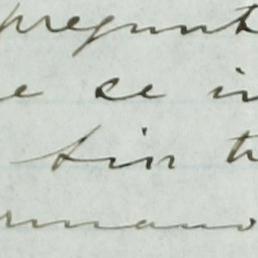 pregunt
e se in
sin t
rmano